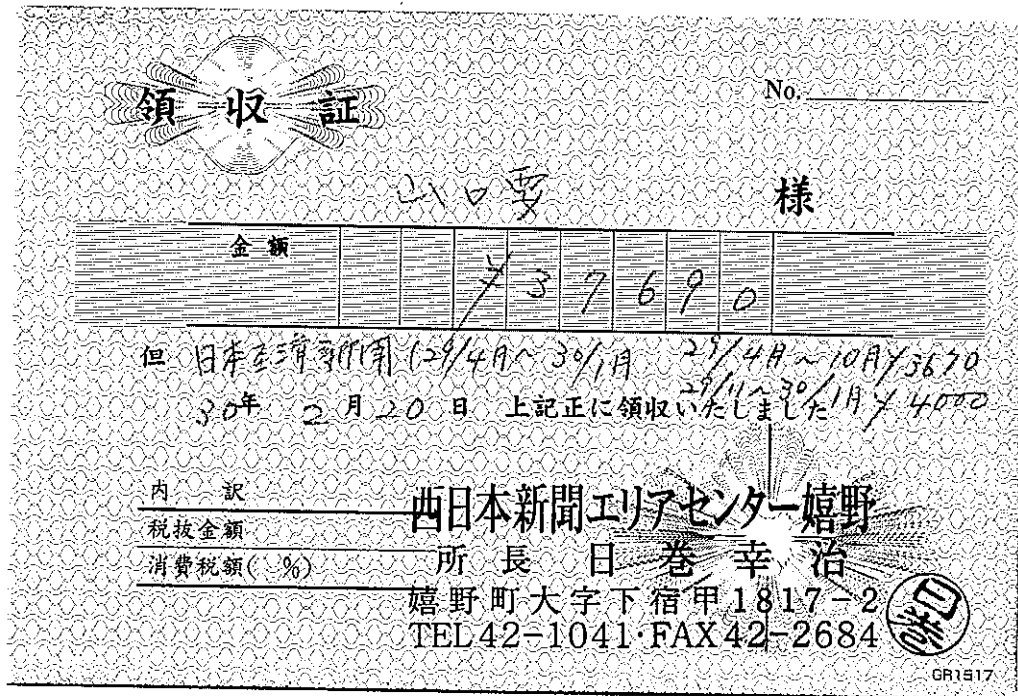 領収証
No.
山口要 様
金額 ¥37690
但 日本経済新聞 (29/4月~30/1月 29/4月~10月 ¥3670
29/11~30/1月 ¥4000
30年 2月20日 上記正に領収いたしました
内 訳
税抜金額
消費税額( %)
西日本新聞エリアセンター嬉野
所長 日巻幸治
嬉野町大字下宿甲1817-2
TEL42-1041·FAX42-2684
日巻
GR1517